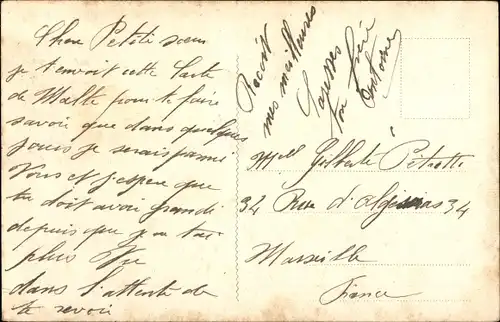 Chere Petite sœur
je t'envoit cette Carte
de Malte pour te faire
savoir que dans quelques
jours je serais parmi
Vous et j'espere que
tu doit avoir Grandi
depuis que je n t'ai
plus Vue
dans l'attente de
te revoir
Recoit
mes meilleures
Caresses
ton frère
Antoine
Mell Gilberte Petretto
34 Rue d' 34
Marseille
France